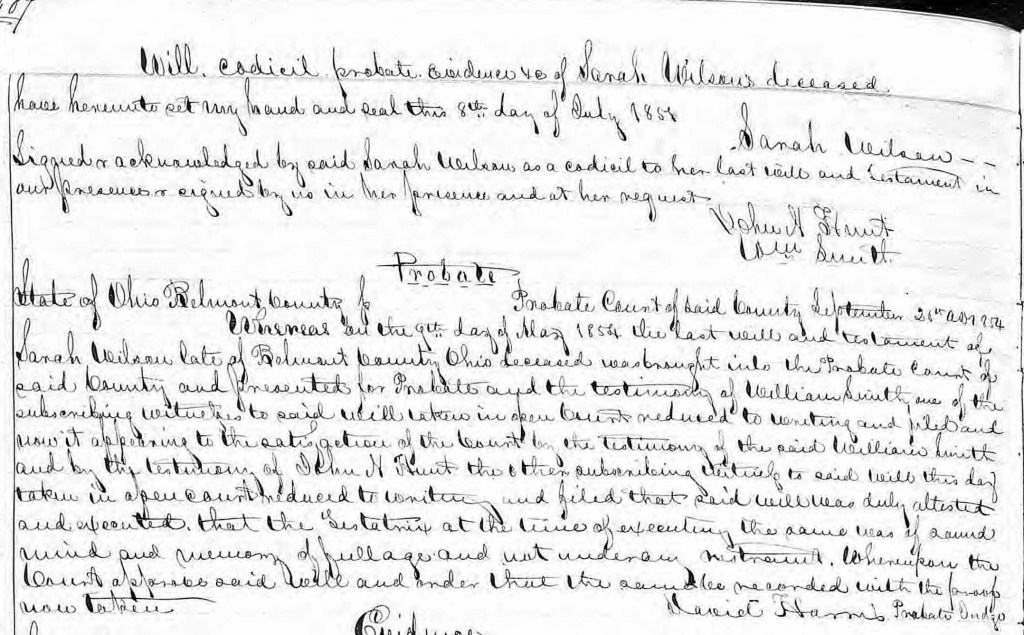 Will, codicil, probate, evidence &c of Sarah Wilson's deceased
have hereunto set my hand and seal this 8th day of July 1851
Sarah Wilson
Signed & acknowledged by said Sarah Wilson as a codicil to her last will and testament in
our presence & signed by us in her presence and at her request
John N Hunt
Wm Smith
Probate
State of Ohio Belmont County Probate Court of said County September 25th AD 1854
Whereas on the 9th day of May 1854 the last will and testament of
Sarah Wilson late of Belmont County Ohio deceased was brought into the Probate Court of
said County and presented for Probate and the testimony of William Smith one of the
subscribing witnesses to said will taken in open Court reduced to writing and filed and
now it appearing to the satisfaction of the Court by the testimony of the said William Smith
and by the testimony of John N Hunt the other subscribing witness to said will this day
taken in open court reduced to writing and filed that said will was duly attested
and executed, that the Testatrix at the time of executing the same was of sound
mind and memory of full age and not under any restraint. Whereupon the
Court approves said will and order that the same be recorded with the proof
now taken David Harris Probate Judge
Evidence